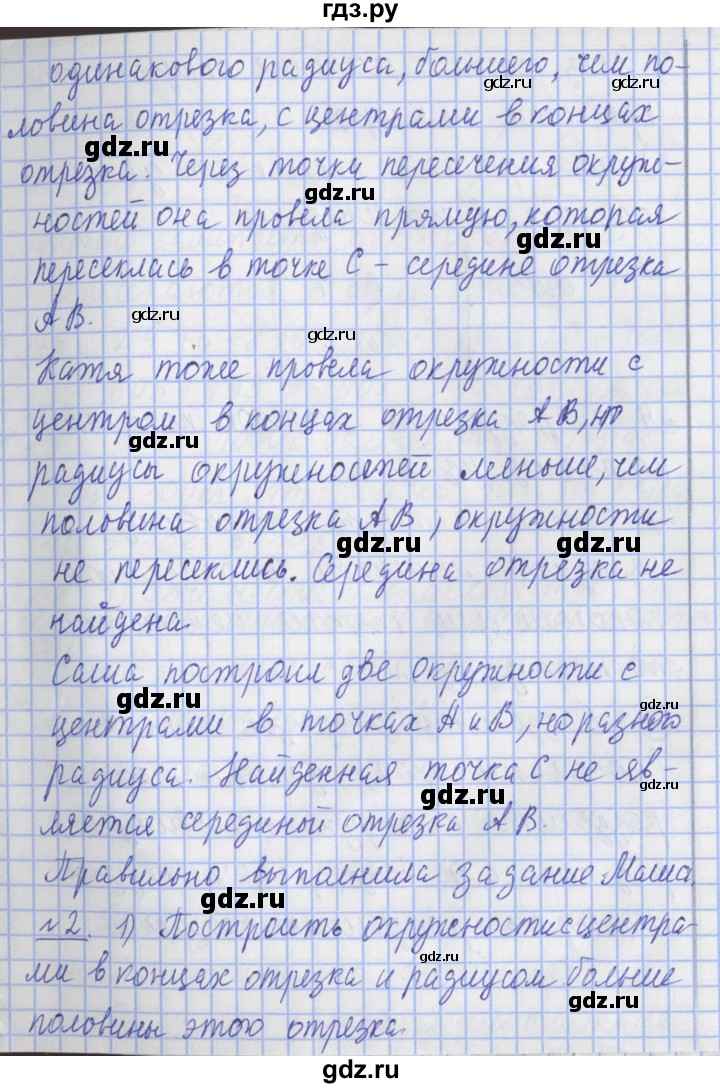 гдз.ру
одинакового радиуса, большего, чем по-
gdz.ru gdz.ru
ловина отрезка, с центрами в концах
gdz.ru
отрезка. Через точки пересечения окруж-
gdz.ru
ностей она провела прямую, которая
gdz.ru
пересеклась в точке С – середине отрезка
АВ.
gdz.ru gdz.ru
Катя тоже провела окружности с
центром в концах отрезка АВ, но
gdz.ru
радиусы окружностей меньше, чем
половина отрезка АВ, окружности
gdz.ru gdz.ru
не пересеклись. Середина отрезка не
найдена.
Саша построил две окружности с
gdz.ru gdz.ru
центрами в точках А и В, но разного
радиуса. Найденная точка С не яв-
gdz.ru gdz.ru
ляется серединой отрезка АВ.
Правильно выполнила задание Маша.
gdz.ru
№2. 1) Построить окружности с центра-
gdz.ru
ми в концах отрезка и радиусом больше
gdz.ru
половины этого отрезка.
gdz.ru
gdz.ru